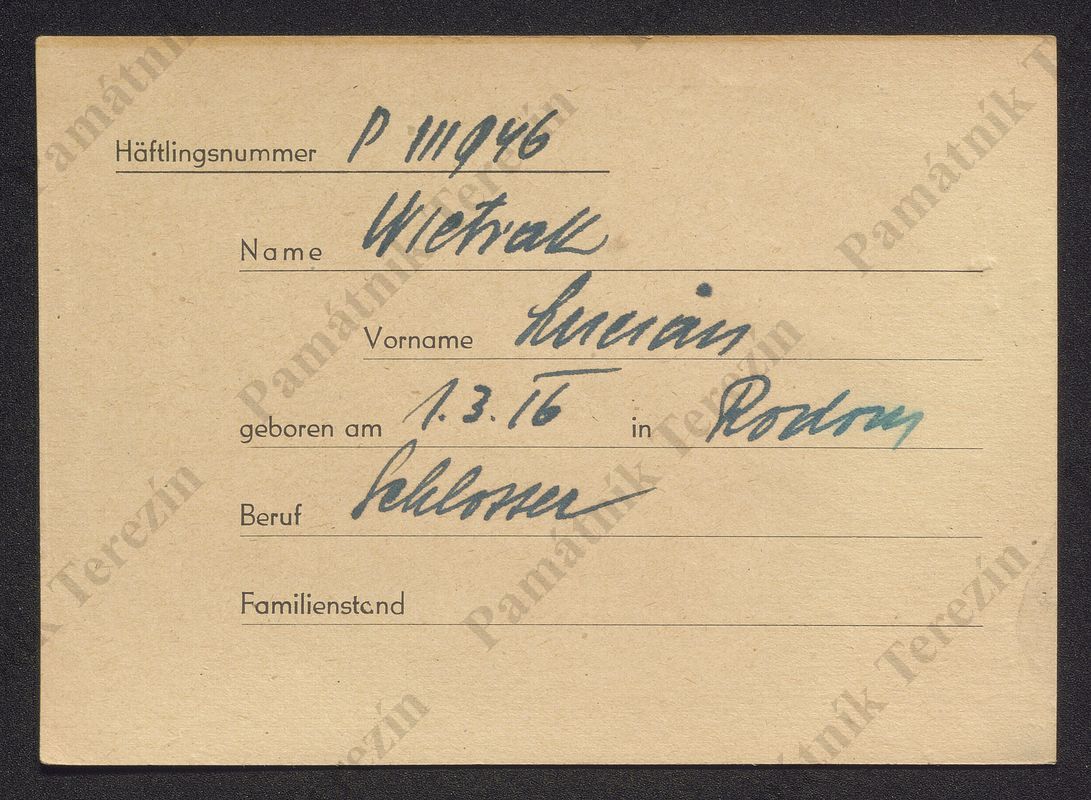 Häftlingsnummer P 111946
Name Wietrak
Vorname Lucian
geboren am 1.3.16 in Rodom
Beruf Schlosser
Familienstand
Památník Terezín